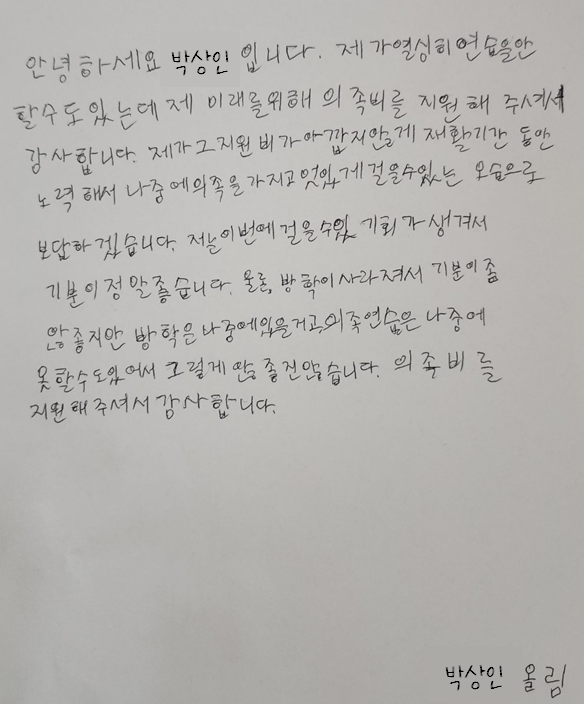 안녕하세요 박상인 입니다. 제가열심히 연습을안
할수도있는데 제 미래를위해 의족비를 지원해 주셔서
감사합니다. 제가그지원비가아깝지안게 재활기간 동안
노력해서 나중에의족을가지고멋있게걸을수있는 모습으로
보답하겠습니다. 저는이번에걸을수있 기회가생겨서
기분이정말좋습니다. 물론, 방학이사라져서 기분이좀
않좋지만 방학은나중에있을거고,의족연습은나중에
못할수도있어서 그렇게 않좋진않습니다. 의족비를
지원해주셔서감사합니다.
박상인 올림